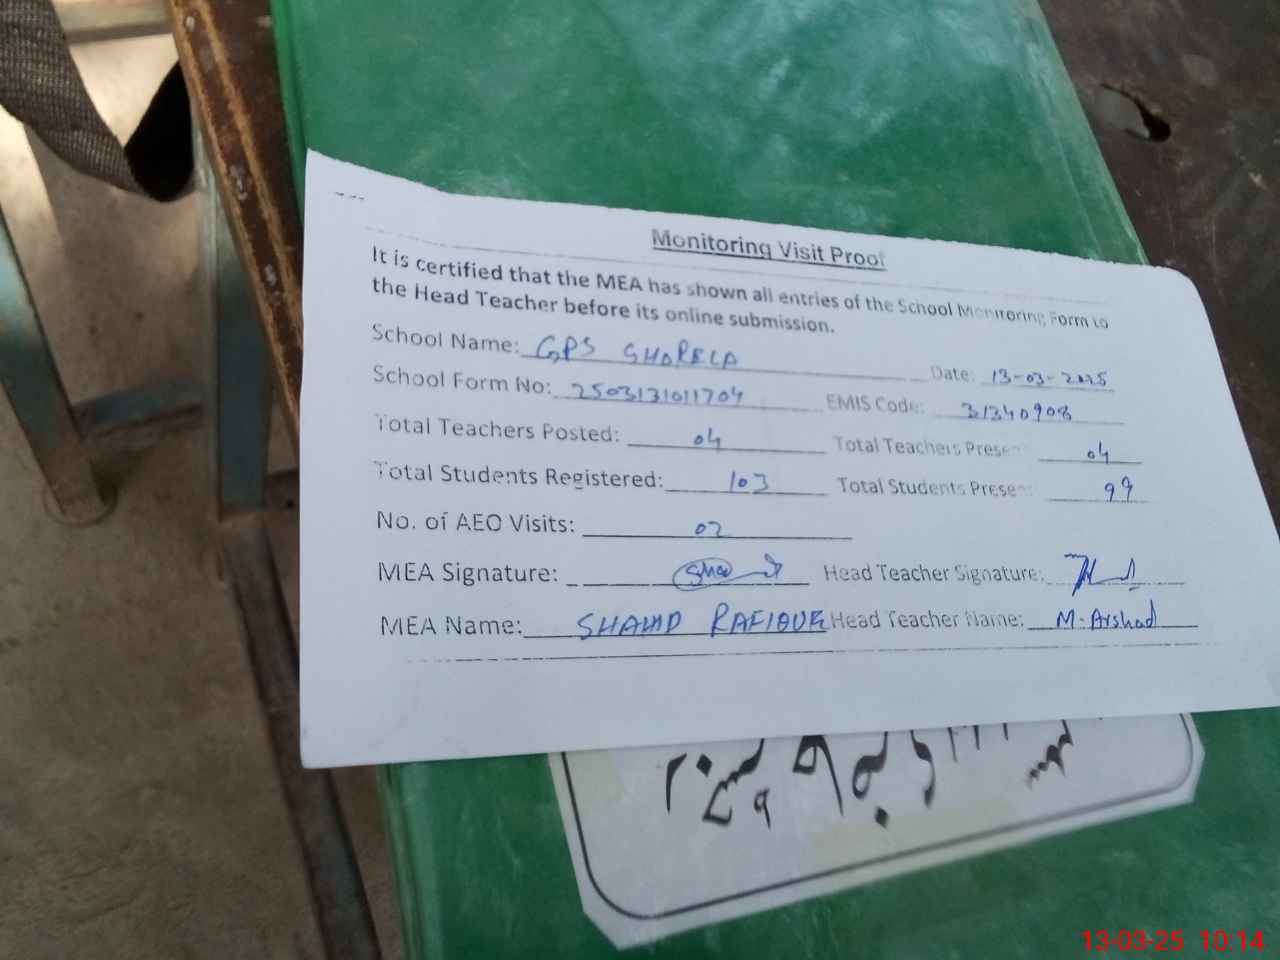 Monitoring Visit Proof
It is certified that the MEA has shown all entries of the School Monitoring Form to
the Head Teacher before its online submission.
School Name: GPS GHORELA Date: 13-03-2025
School Form No: 2503131011704 EMIS Code: 31340908
Total Teachers Posted: 04 Total Teachers Present 04
Total Students Registered: 103 Total Students Present 99
No. of AEO Visits: 02
MEA Signature: Head Teacher Signature:
MEA Name: SHAHID RAFIQUE Head Teacher Name: M. Arshad
13-03-25 10:14